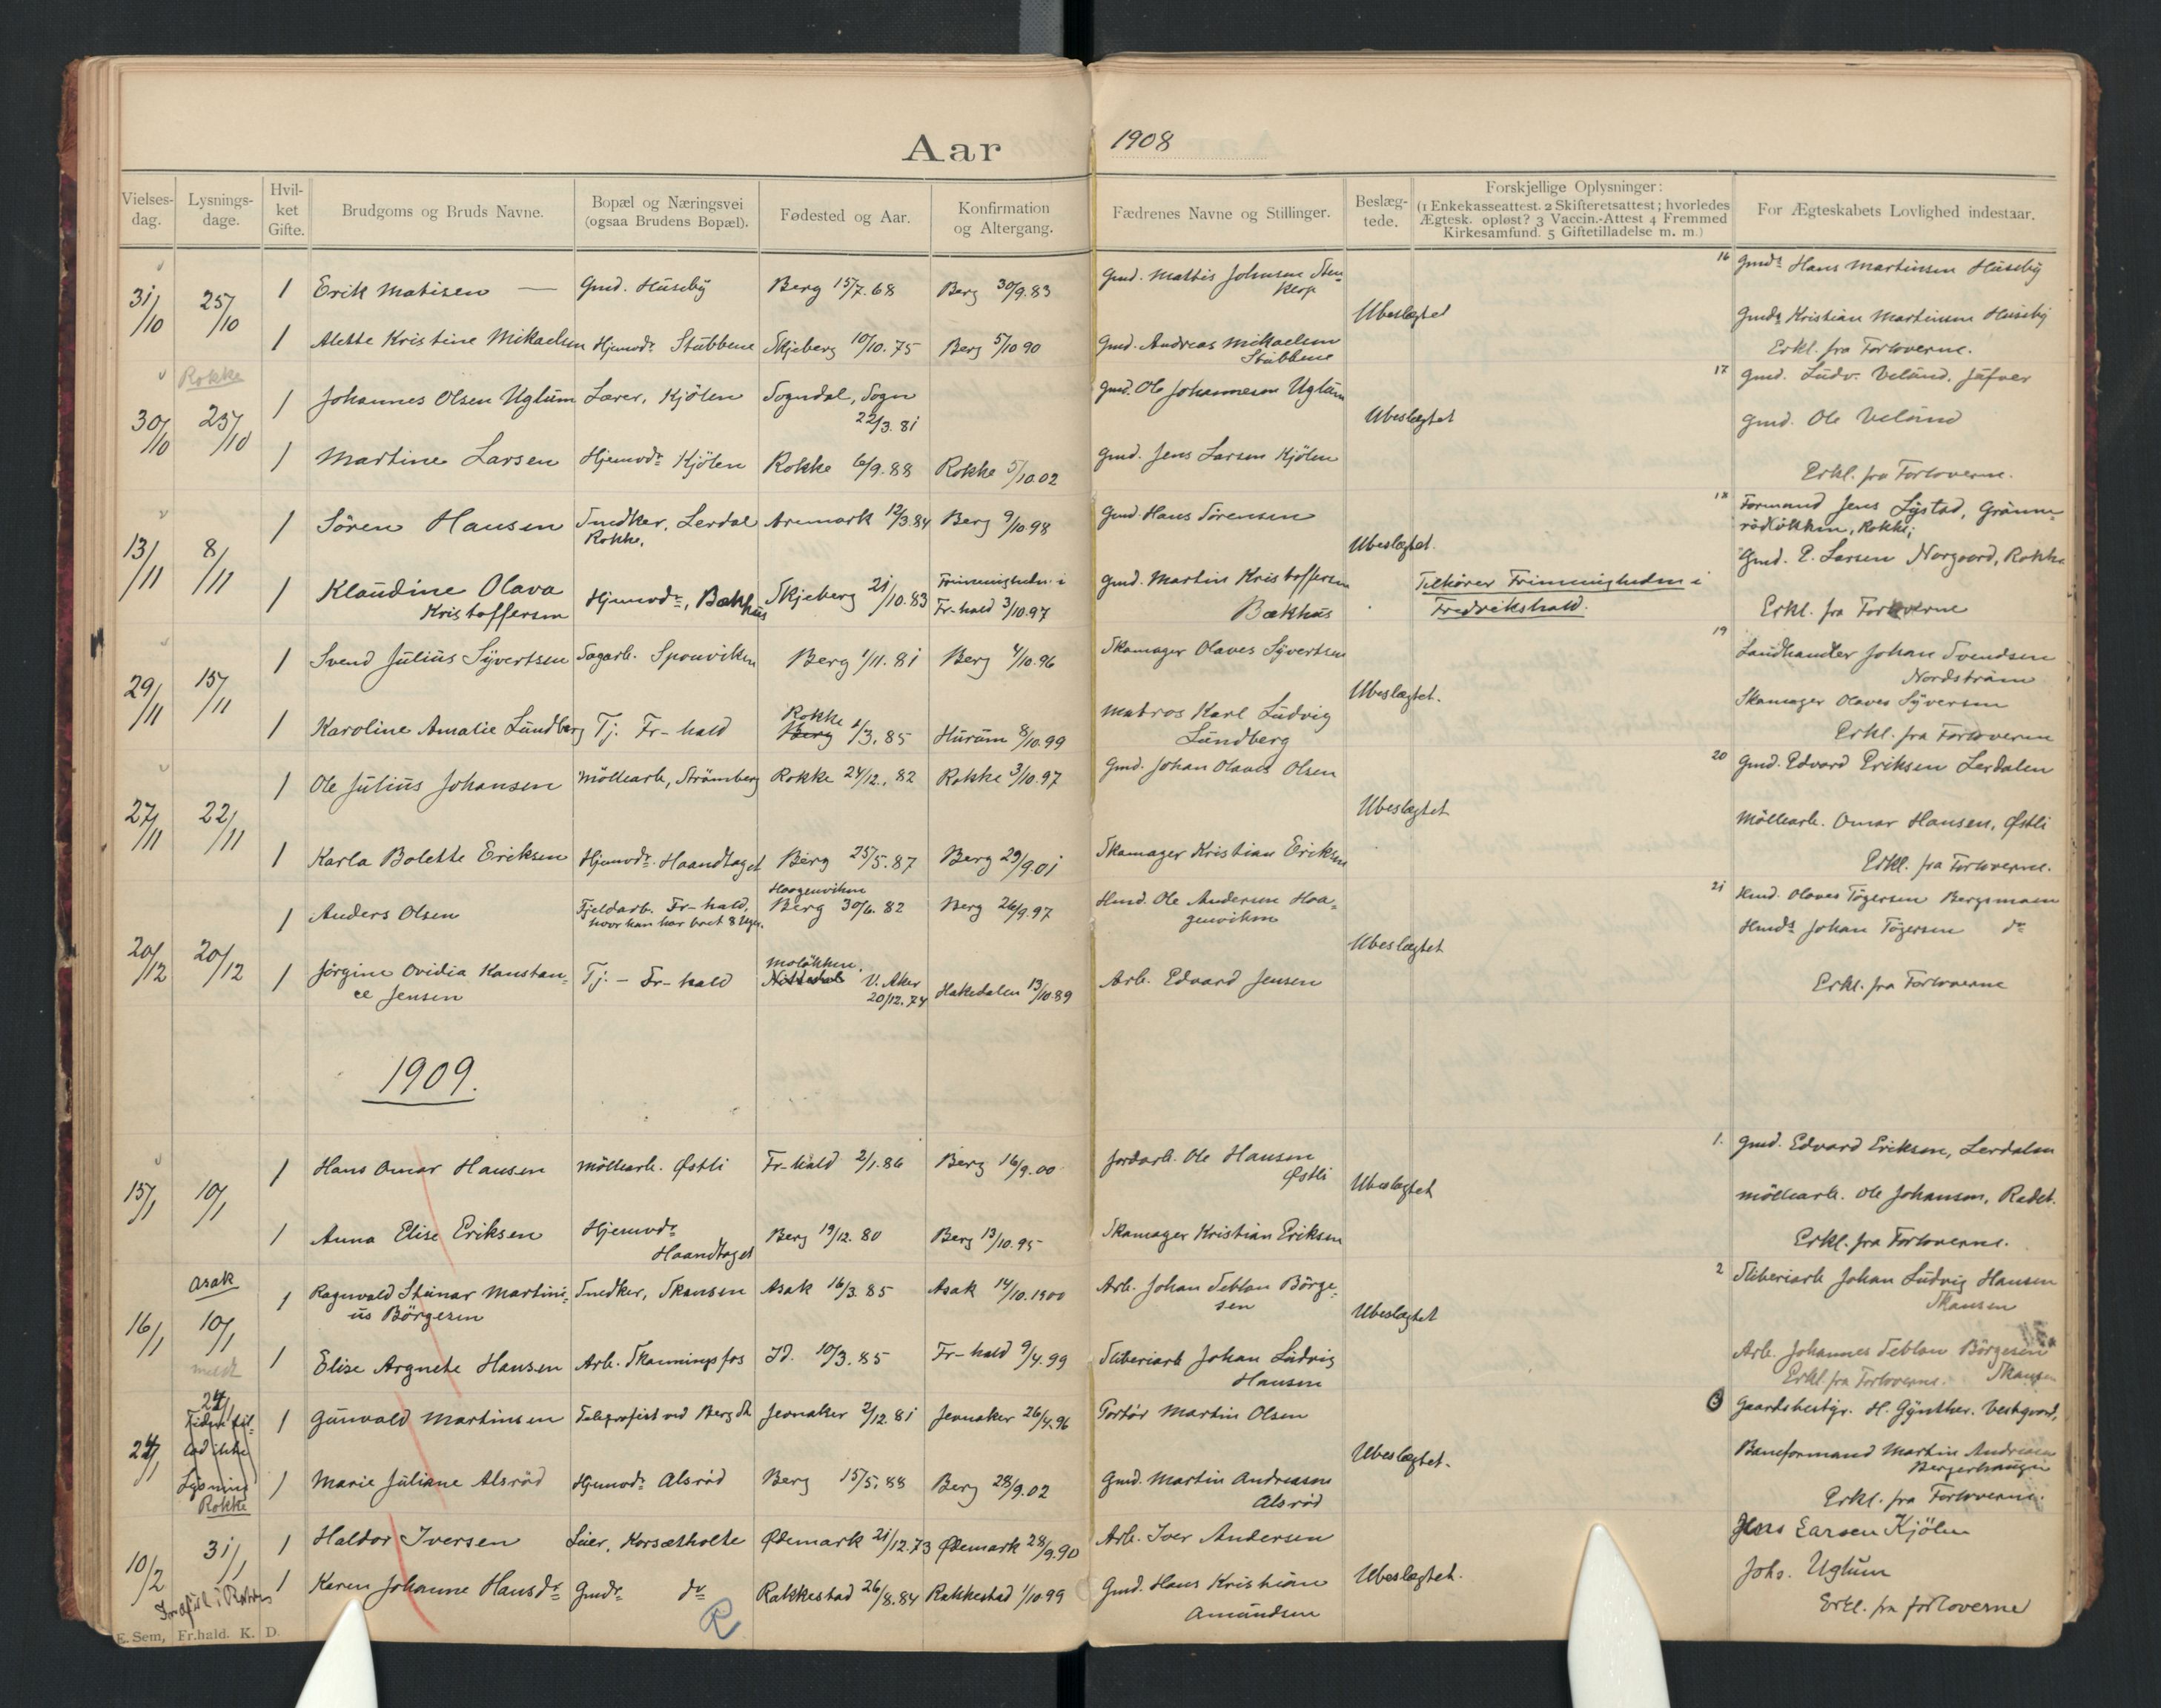 Aar 1908
Vielses-dag. Lysnings-dage. Hvil-ket Gifte. Brudgoms og Bruds Navne. Bopæl og Næringsvei (ogsaa Brudens Bopæl). Fødested og Aar. Konfirmation og Altergang. Fædrenes Navne og Stillinger. Beslæg-tede. Forskjellige Oplysninger: (1 Enkekasseattest. 2 Skifteretsattest; hvorledes Ægtesk. opløst? 3 Vaccin.-Attest 4 Fremmed Kirkesamfund. 5 Giftetilladelse m. m.) For Ægteskabets Lovlighed indestaar.
31/10 25/10 1 Erik Matisen — Gmd. Huseby Berg 15/7.68 Berg 30/9.83 Gmd. Mattis Johnsen 16 Gmds Hans Martinsen Huseby
Ubeslægtet Gmds Kristian Martinsen Huseby
1 Alette Kristine Mikaelsen Hjemvdr Stubbene Skjeberg 10/10.75 Berg 5/10 90 Gmd. Andreas Mikaelsen
Stubbene
Erkl. fra Forloverne.
Rokke
30/10 25/10 1 Johannes Olsen Uglum Lærer, Kjölen Sogndal, Sogn
22/3.81
Gmd. Ole Johannesen Uglum 17 Gmd. Ludv. Velund.
Ubeslægtet Gmd. Ole Velund
1 Martine Larsen Hjemvdr Kjölen Rokke 6/9.88 Rokke 5/10.02 Gmd. Jens Larsen Kjölen
Erkl. fra Forloverne.
13/11 8/11 1 Sören Hansen Snedker, Lerdal
Rokke.
Aremark 12/3.84 Berg 9/10 98 Gmd Hans Sörensen 18 Formand Jens Lystad, Grönn-
rödlökken, Rokke;
Ubeslægtet. Gmd. E. Larsen Norgaard, Rokke
1 Klaudine Olava
Kristoffersen
Hjemvdr, Bækhus Skjeberg 21/10.83 Frimenigheden i
Fr-hald 3/10.97
Gmd. Martin Kristoffersen
Bækhus
Tilhører Frimenigheden i
Fredrikshald.
Erkl. fra Forloverne
29/11 15/11 1 Svend Julius Syvertsen Sagarb. Sponviken Berg 1/11.81 Berg 4/10.96 Skomager Olaves Syvertsen 19 Landhandler Johan Svendsen
Nordstrøm
Ubeslægtet. Skomager Olaves Syversen
1 Karoline Amalie Lundberg Tj. Fr-hald Rokke
Berg 1/3.85
Hurum 8/10.99 Matros Karl Ludvig
Lundberg
Erkl. fra Forloverne
27/11 22/11 1 Ole Julius Johansen Möllearb, Strömberg Rokke 24/12.82 Rokke 3/10.97 Gmd. Johan Olaves Olsen 20 Gmd. Edvard Eriksen Lerdalen
Ubeslægtet Möllearb. Omar Hansen, Østli
1 Karla Bolette Eriksen Hjemvdr. Haandtaget Berg 25/5.87 Berg 29/9.01 Skomager Kristian Eriksen
Erkl. fra Forloverne.
20/12 20/12 1 Anders Olsen Fjeldarb. Fr-hald,
hvor han har boet 8 Uger.
Hoogenviken
Berg 30/6.82
Berg 26/9.97 Hmd. Ole Andersen Hoo-
genviken
21 Hmd. Olaves Tögersen Bergsmoen
Ubeslægtet Hmds Johan Tögersen do
1 Jörgine Ovidia Konstan-
ce Jensen
Tj. - Fr-hald Moløkken.
V. Aker
20/12.74
Hakedalen 13/10.89 Arb. Edvard Jensen
Erkl. fra Forloverne
1909.
15/1 10/1 1 Hans Omar Hansen Möllearb. Østli Fr-hald 2/1.86 Berg 16/9.00 Jordarb. Ole Hansen
Østli
1. Gmd. Edvard Eriksen, Lerdalen
Ubeslægtet Möllearb. Ole Johansen, Rødet.
1 Anna Elise Eriksen Hjemvdr
Haandtaget
Berg 19/12.80 Berg 13/10.95 Skomager Kristian Eriksen
Erkl. fra Forloverne.
Asak
16/1 10/1 1 Ragnvald Steinar Martini-
us Börgesen
Snedker, Skansen Asak 16/3.85 Asak 14/10.1900 Arb. Johan Seblon Börge-
sen
2 Sliberiarb Johan Ludvig Hansen
Skansen
Ubeslægtet
1 Elise Argnete Hansen Arb. Skanningsfos Id. 10/3.85 Fr-hald 9/4.99 Sliberiarb Johan Ludvig
Hansen
Arb. Johannes Seblon Börgesen
Erkl. fra Forloverne. Skansen
24/1
Tiden til-
lod ikke
Lysning
24/1 1 Gunvald Martinsen Telegrafist ved Berg St Jevnaker 2/12.81 Jevnaker 26/4.96 Portör Martin Olsen 3 Gaardsbestyr. H. Gynther. Vestgaard,
Ubeslægtet. Baneformand Martin Andreasen
Bergerhaugen
1 Marie Juliane Alsröd Hjemvdr Alsröd Berg 15/5.88 Berg 28/9.02 Gmd. Martin Andreasen
Alsröd
Erkl. fra Forloverne.
Rokke
10/2 31/1 1 Haldor Iversen Leier, Korsætholte Ødemark 21/12.73 Ødemark 28/9.90 Arb. Iver Andersen Jens Larsen Kjölen
Ubeslægtet. Johs. Uglum
1 Karen Johanne Hansdr Gmdr do Rakkestad 26/8.84 Rakkestad 1/10 99 Gmd. Hans Kristian
Amundsen
Erkl. fra forloverne
R
E. Sem, Fr.hald. K. D.